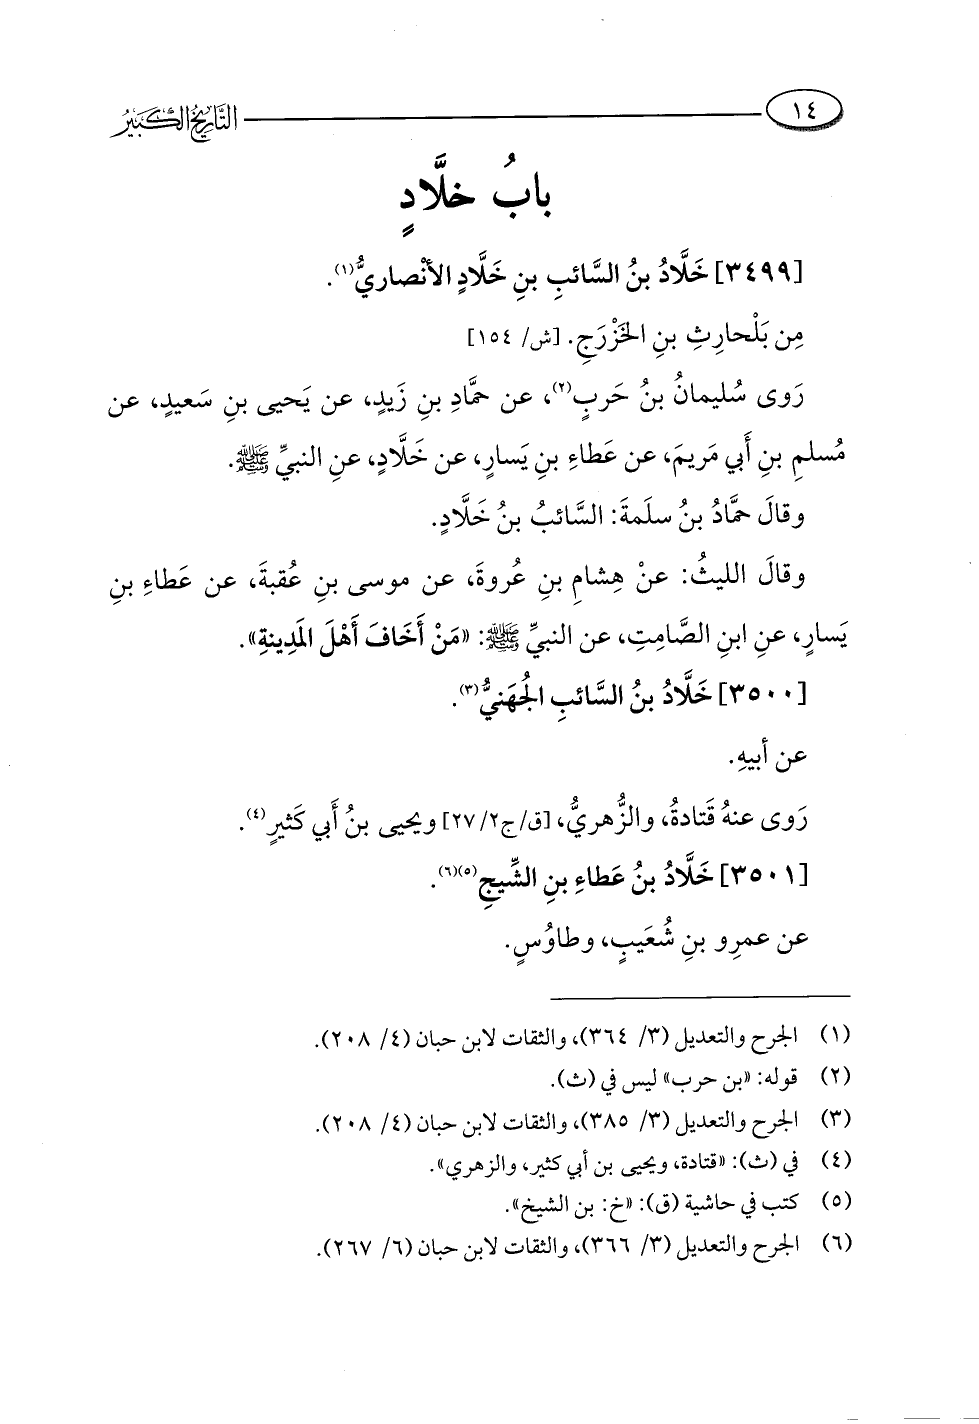 ١٤
التَّارِيخُ الكَبِيرُ
بابُ خلَّادٍ
[٣٤٩٩] خَلَّادُ بنُ السَّائبِ بنِ خَلَّادٍ الأنْصاريُّ(١).
مِن بَلْحارِثِ بنِ الخَزْرَجِ. [ش/ ١٥٤]
رَوى سُليمانُ بنُ حَربٍ(٢)، عن حمَّادِ بنِ زَيدٍ، عن يَحيى بنِ سَعيدٍ، عن
مُسلمِ بنِ أَبي مَريمَ، عن عَطاءِ بنِ يَسارٍ، عن خَلَّادٍ، عنِ النبيِّ ﷺ.
وقالَ حمَّادُ بنُ سلَمةَ: السَّائبُ بنُ خَلَّادٍ.
وقالَ الليثُ: عنْ هِشامِ بنِ عُروةَ، عن موسى بنِ عُقبةَ، عن عَطاءِ بنِ
يَسارٍ، عنِ ابنِ الصَّامِتِ، عن النبيِّ ﷺ: «مَنْ أَخَافَ أَهْلَ المَدِينةِ».
[٣٥٠٠] خَلَّادُ بنُ السَّائبِ الجُهَنيُّ(٣).
عن أَبيهِ.
رَوى عنهُ قَتادةُ، والزُّهريُّ، [ق/ج٢/ ٢٧] ويحيى بنُ أَبي كَثيرٍ(٤).
[٣٥٠١] خَلَّادُ بنُ عَطاءِ بنِ الشِّيجِ(٥)(٦).
عن عمرِو بنِ شُعَيبٍ، وطاوُسٍ.
(١) الجرح والتعديل (٣/ ٣٦٤)، والثقات لابن حبان (٤/ ٢٠٨).
(٢) قوله: «بن حرب» ليس في (ث).
(٣) الجرح والتعديل (٣/ ٣٨٥)، والثقات لابن حبان (٤/ ٢٠٨).
(٤) في (ث): «قتادة، ويحيى بن أبي كثير، والزهري».
(٥) كتب في حاشية (ق): «خ: بن الشيخ».
(٦) الجرح والتعديل (٣/ ٣٦٦)، والثقات لابن حبان (٦/ ٢٦٧).